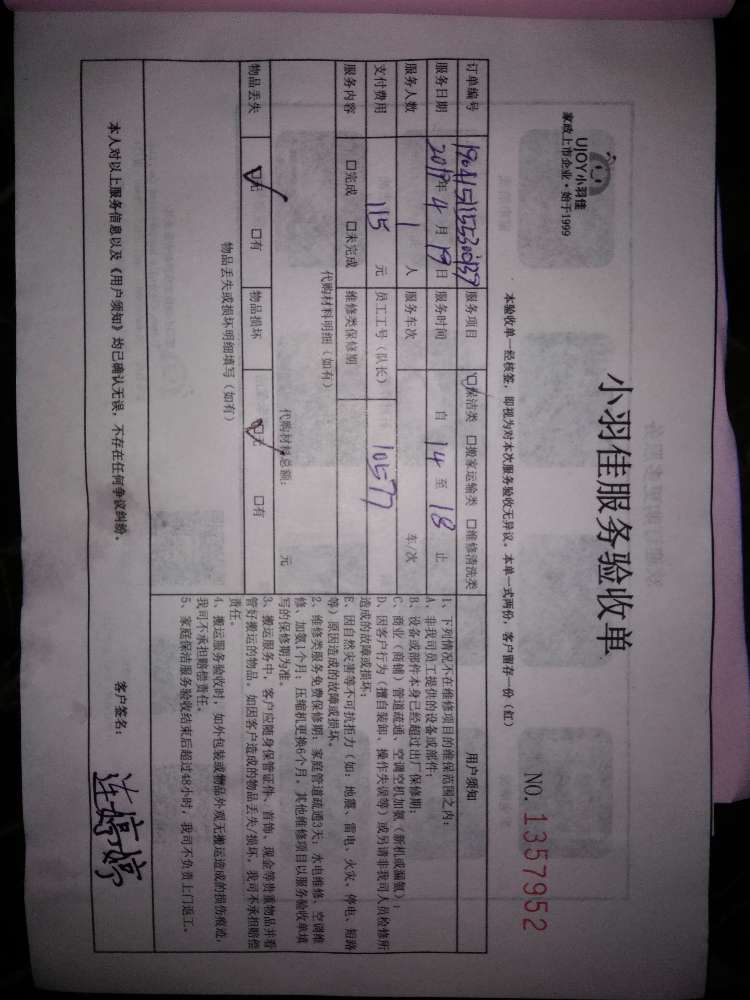 UJOY小羽佳
家政上市企业·始于1999
小羽佳服务验收单
NO. 1357952
本验收单一经核签，即视为对本次服务验收无异议。本单一式两份，客户留存一份（红）
订单编号 服务项目 ☑保洁类 □搬家运输类 □维修清洗类
服务日期 2019年 4 月 19 日 服务时间 自 14 至 18 止
服务人数 1 人 服务车次 车/次
支付费用 115 元 员工工号（队长） 10577
服务内容 □完成 □未完成 维修类保修期
代购材料明细（如有）
代购材料总额： 元
物品丢失 ☑无 □有 物品损坏 ☑无 □有
物品丢失或损坏明细填写（如有）
用户须知
1、下列情况不在维修项目的维保范围之内：
A、非我司员工提供的设备或部件；
B、设备或部件本身已经超过出厂保修期；
C、商业（商铺）管道疏通、空调空机加氨（新机或漏氨）；
D、因客户行为（擅自装卸、操作失误等）或另请非我司人员检修所
造成的故障或损坏；
E、因自然灾害等不可抗拒力（如：地震、雷电、火灾、停电、短路
等）原因造成的故障或损坏。
2、维修类服务免费保修期：家庭管道疏通3天；水电维修、空调维
修、加氨1个月；压缩机更换6个月，其他维修项目以服务验收单填
写的保修期为准。
3、搬运服务中，客户应随身保管证件、首饰、现金等贵重物品并看
管好搬运的物品，如因客户造成的物品丢失/损坏，我司不承担赔偿
责任。
4、搬运服务验收时，如外包装或物品外观无搬运造成的损伤痕迹，
我司不承担赔偿责任。
5、家庭保洁服务验收结束后超过48小时，我司不负责上门返工。
本人对以上服务信息以及《用户须知》均已确认无误，不存在任何争议纠纷。 客户签名： 连婷婷